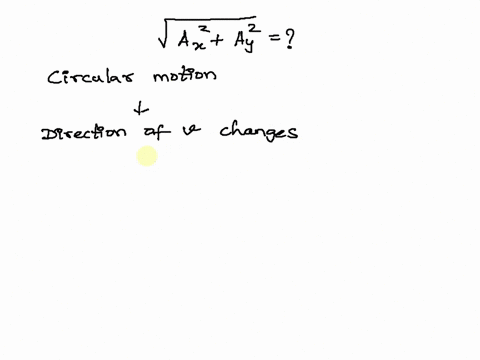 √(Aₓ² + Aᵧ²) = ?
Circular motion
↓
Direction of v changes